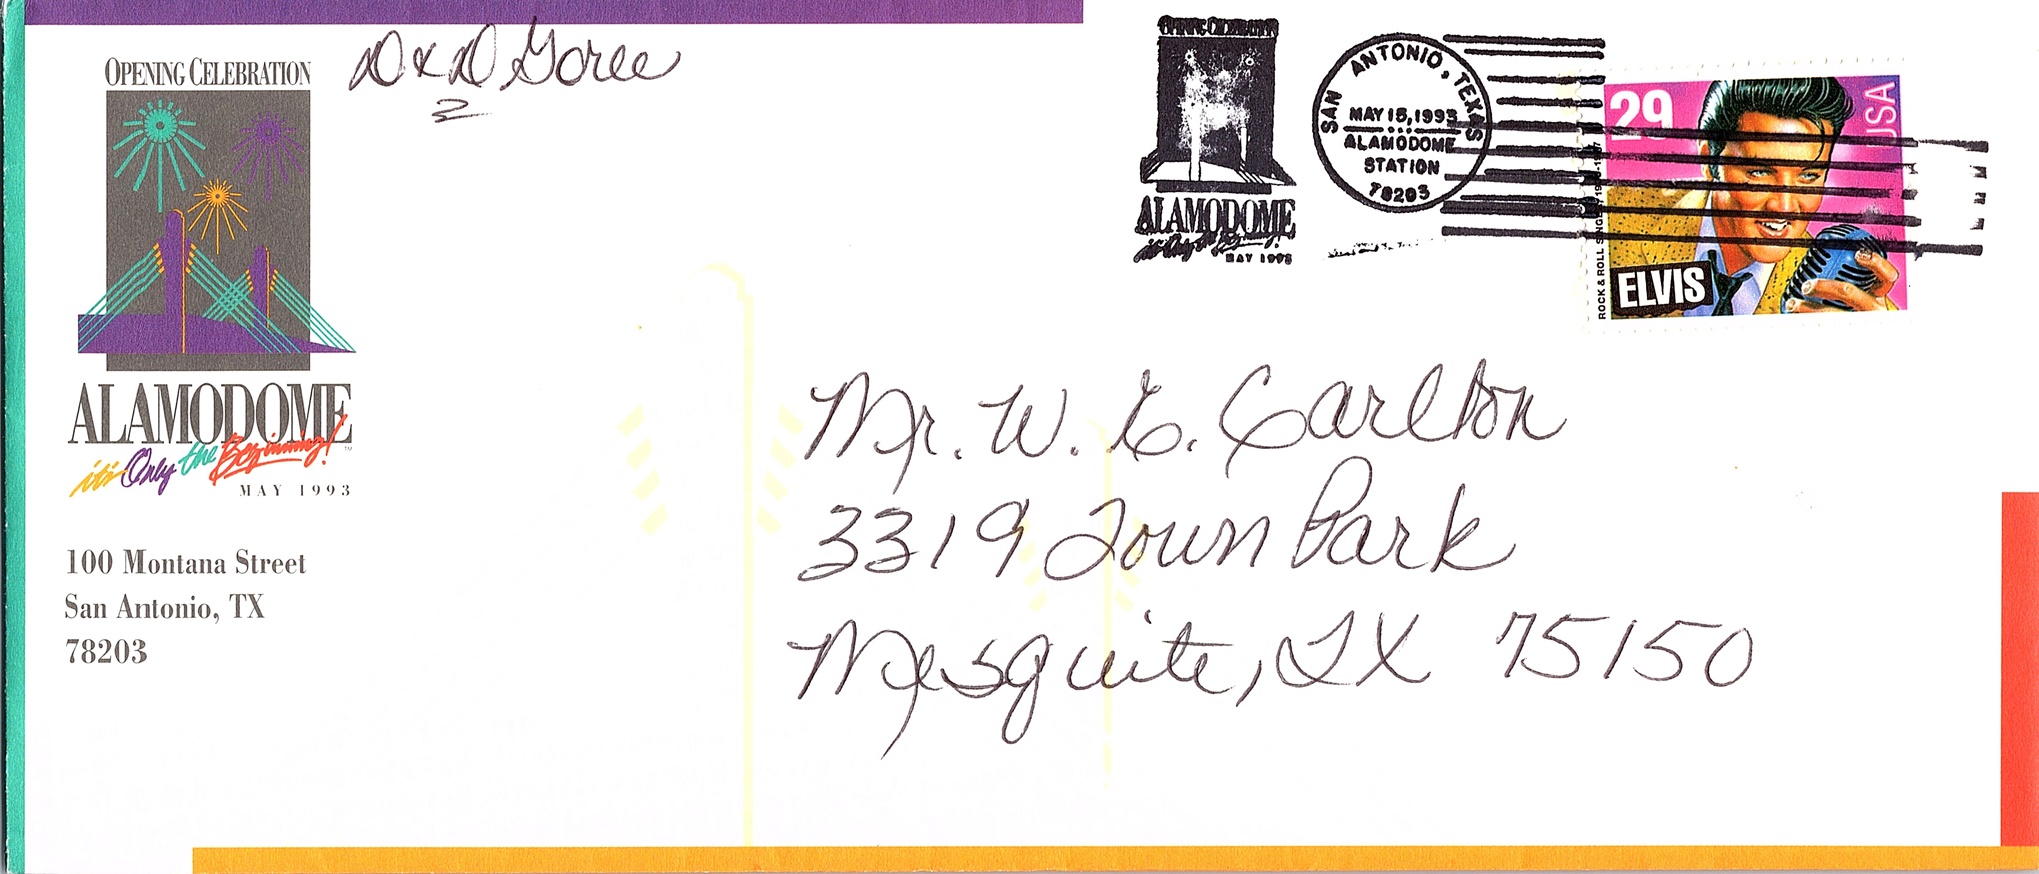 OPENING CELEBRATION
D & D Goree
ALAMODOME
it's Only the Beginning!
MAY 1993
100 Montana Street
San Antonio, TX
78203
OPENING CELEBRATION
ALAMODOME
it's Only the Beginning!
MAY 1993
SAN ANTONIO, TEXAS
MAY 15, 1993
ALAMODOME
STATION
78203
29
USA
ELVIS
ROCK & ROLL SINGER, 1935-1977
Mr. W. E. Carlton
3319 Town Park
Mesquite, TX 75150